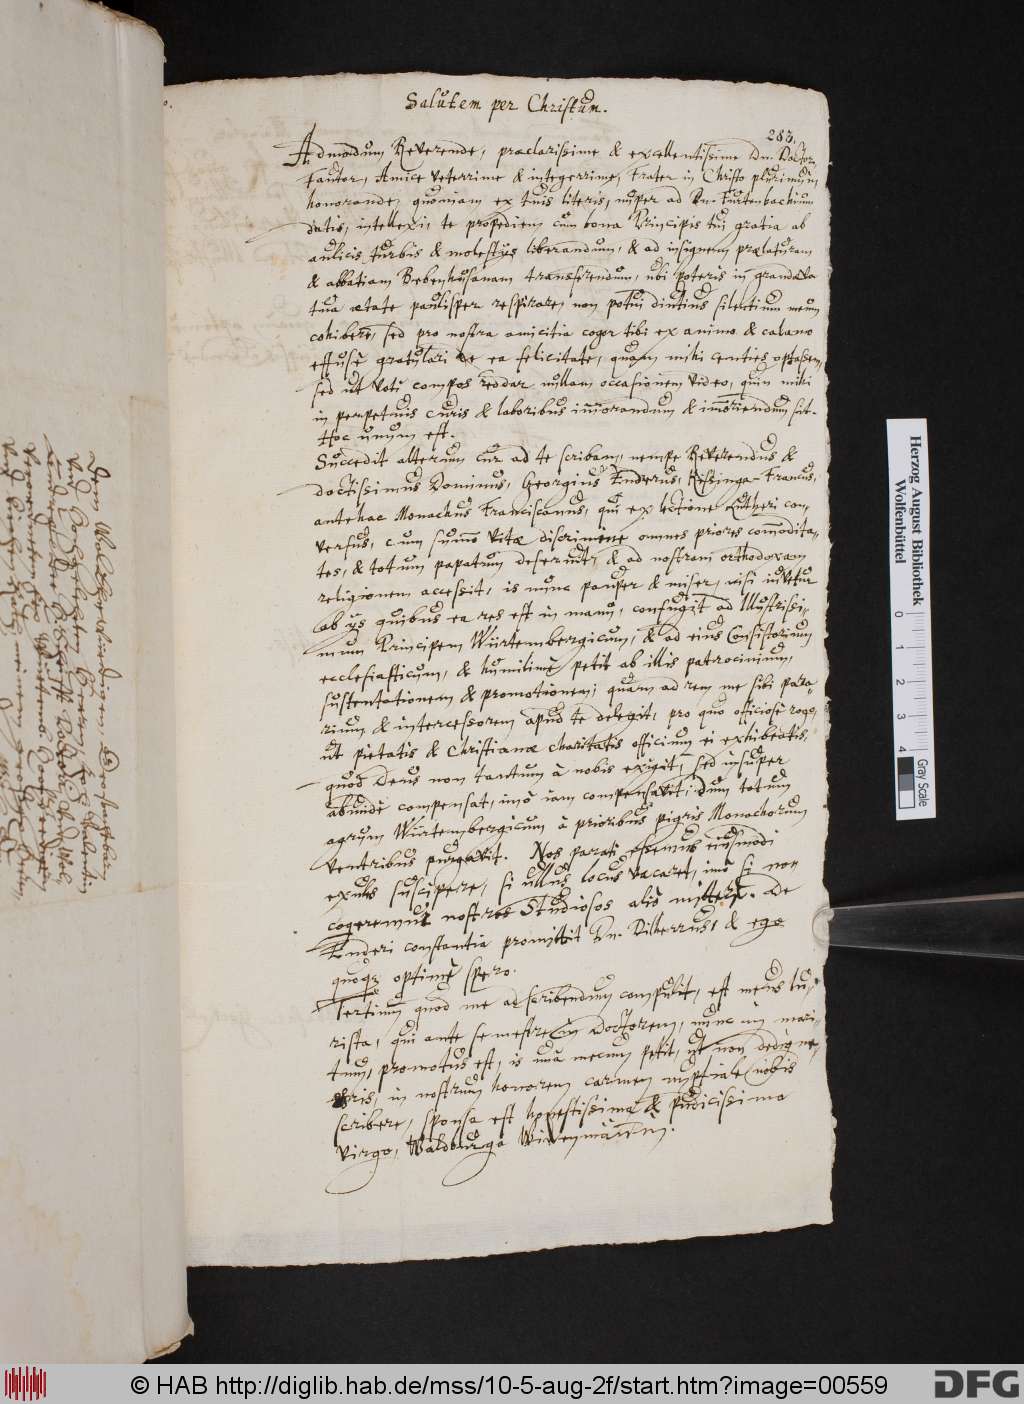 Salutem per Christum.
283.
Admodum Reverende, præclarissime & excellentissime Dn. Doctor,
Fautor, Amice veterrime & integerrime, Frater in Christo plurimum
honorande, quoniam ex tuis literis, nuper ad Dn. Furtenbachium
datis, intellexi, te propediem cum bona Principis tui gratia ab
aulicis turbis & molestijs liberandum, & ad insignem prælaturam
& abbatiam Bebenhusanam transferendum, ubi poteris in grandæva
tua ætate paulisper respirare, non potui diutius silentium meum
cohibere, sed pro nostra amicitia cogor tibi ex animo & calamo
effusè gratulari de ea felicitate, quam mihi centies optassem,
sed ut voti compos reddar nullam occasionem video, quin mihi
in perpetuis curis & laboribus im̄orandum & im̄oriendum sit.
Hoc unum est.
Succedit alterum cur ad te scribam, nempe Reverendus &
doctissimus Dominus, Georgius Enderus, Kissinga-Francus,
antehac Monachus Franciscanus, qui ex lectione Lutheri con,
versus, cum sum̄o vitæ discrimine omnes priores com̄odita,
tes, & totum papatum deseruit, & ad nostram orthodoxam
religionem accessit, is nunc pauper & miser, nisi iuvetur
ab ijs quibus ea res est in manu, confugit ad Illustrissi,
mum Principem Würtembergicum, & ad eius Consistorium
ecclesiasticum, & humilimè petit ab illis patrocinium,
sustentationem & promotionem; quam ad rem me sibi para,
rium & intercessorem apud te delegit, pro quo officiosè rogo,
ut pietatis & Christianæ charitatis officium ei exhibeatis,
quod Deus non tantum à nobis exigit, sed insuper
abundè compensat, imò iam compensavit, dum totum
agrum Würtembergicum à prioribus pigris Monachorum
ventribus purgavit. Nos parati essemus eiusmodi
exules suscipere, si ullus locus vacaret, imò si non
cogeremur nostros Studiosos aliò mittere. De
Enderi constantia promittit Dn. Dilherrus, & ego
quoq optimè spero.
Tertium quod me ad scribendum compulit, est meus Iu,
rista, qui ante semestre in Doctorem, nunc in mari,
tum, promotus est, is unà mecum petit, ut non dedigne,
eris, in nostrum honorem carmen nuptiale nobis
scribere, sponsa est honestissima & pudicissima
virgo, Waldburga
Herzog August Bibliothek
Wolfenbüttel
0 1 2 3 4
Gray Scale
© HAB http://diglib.hab.de/mss/10-5-aug-2f/start.htm?image=00559
DFG